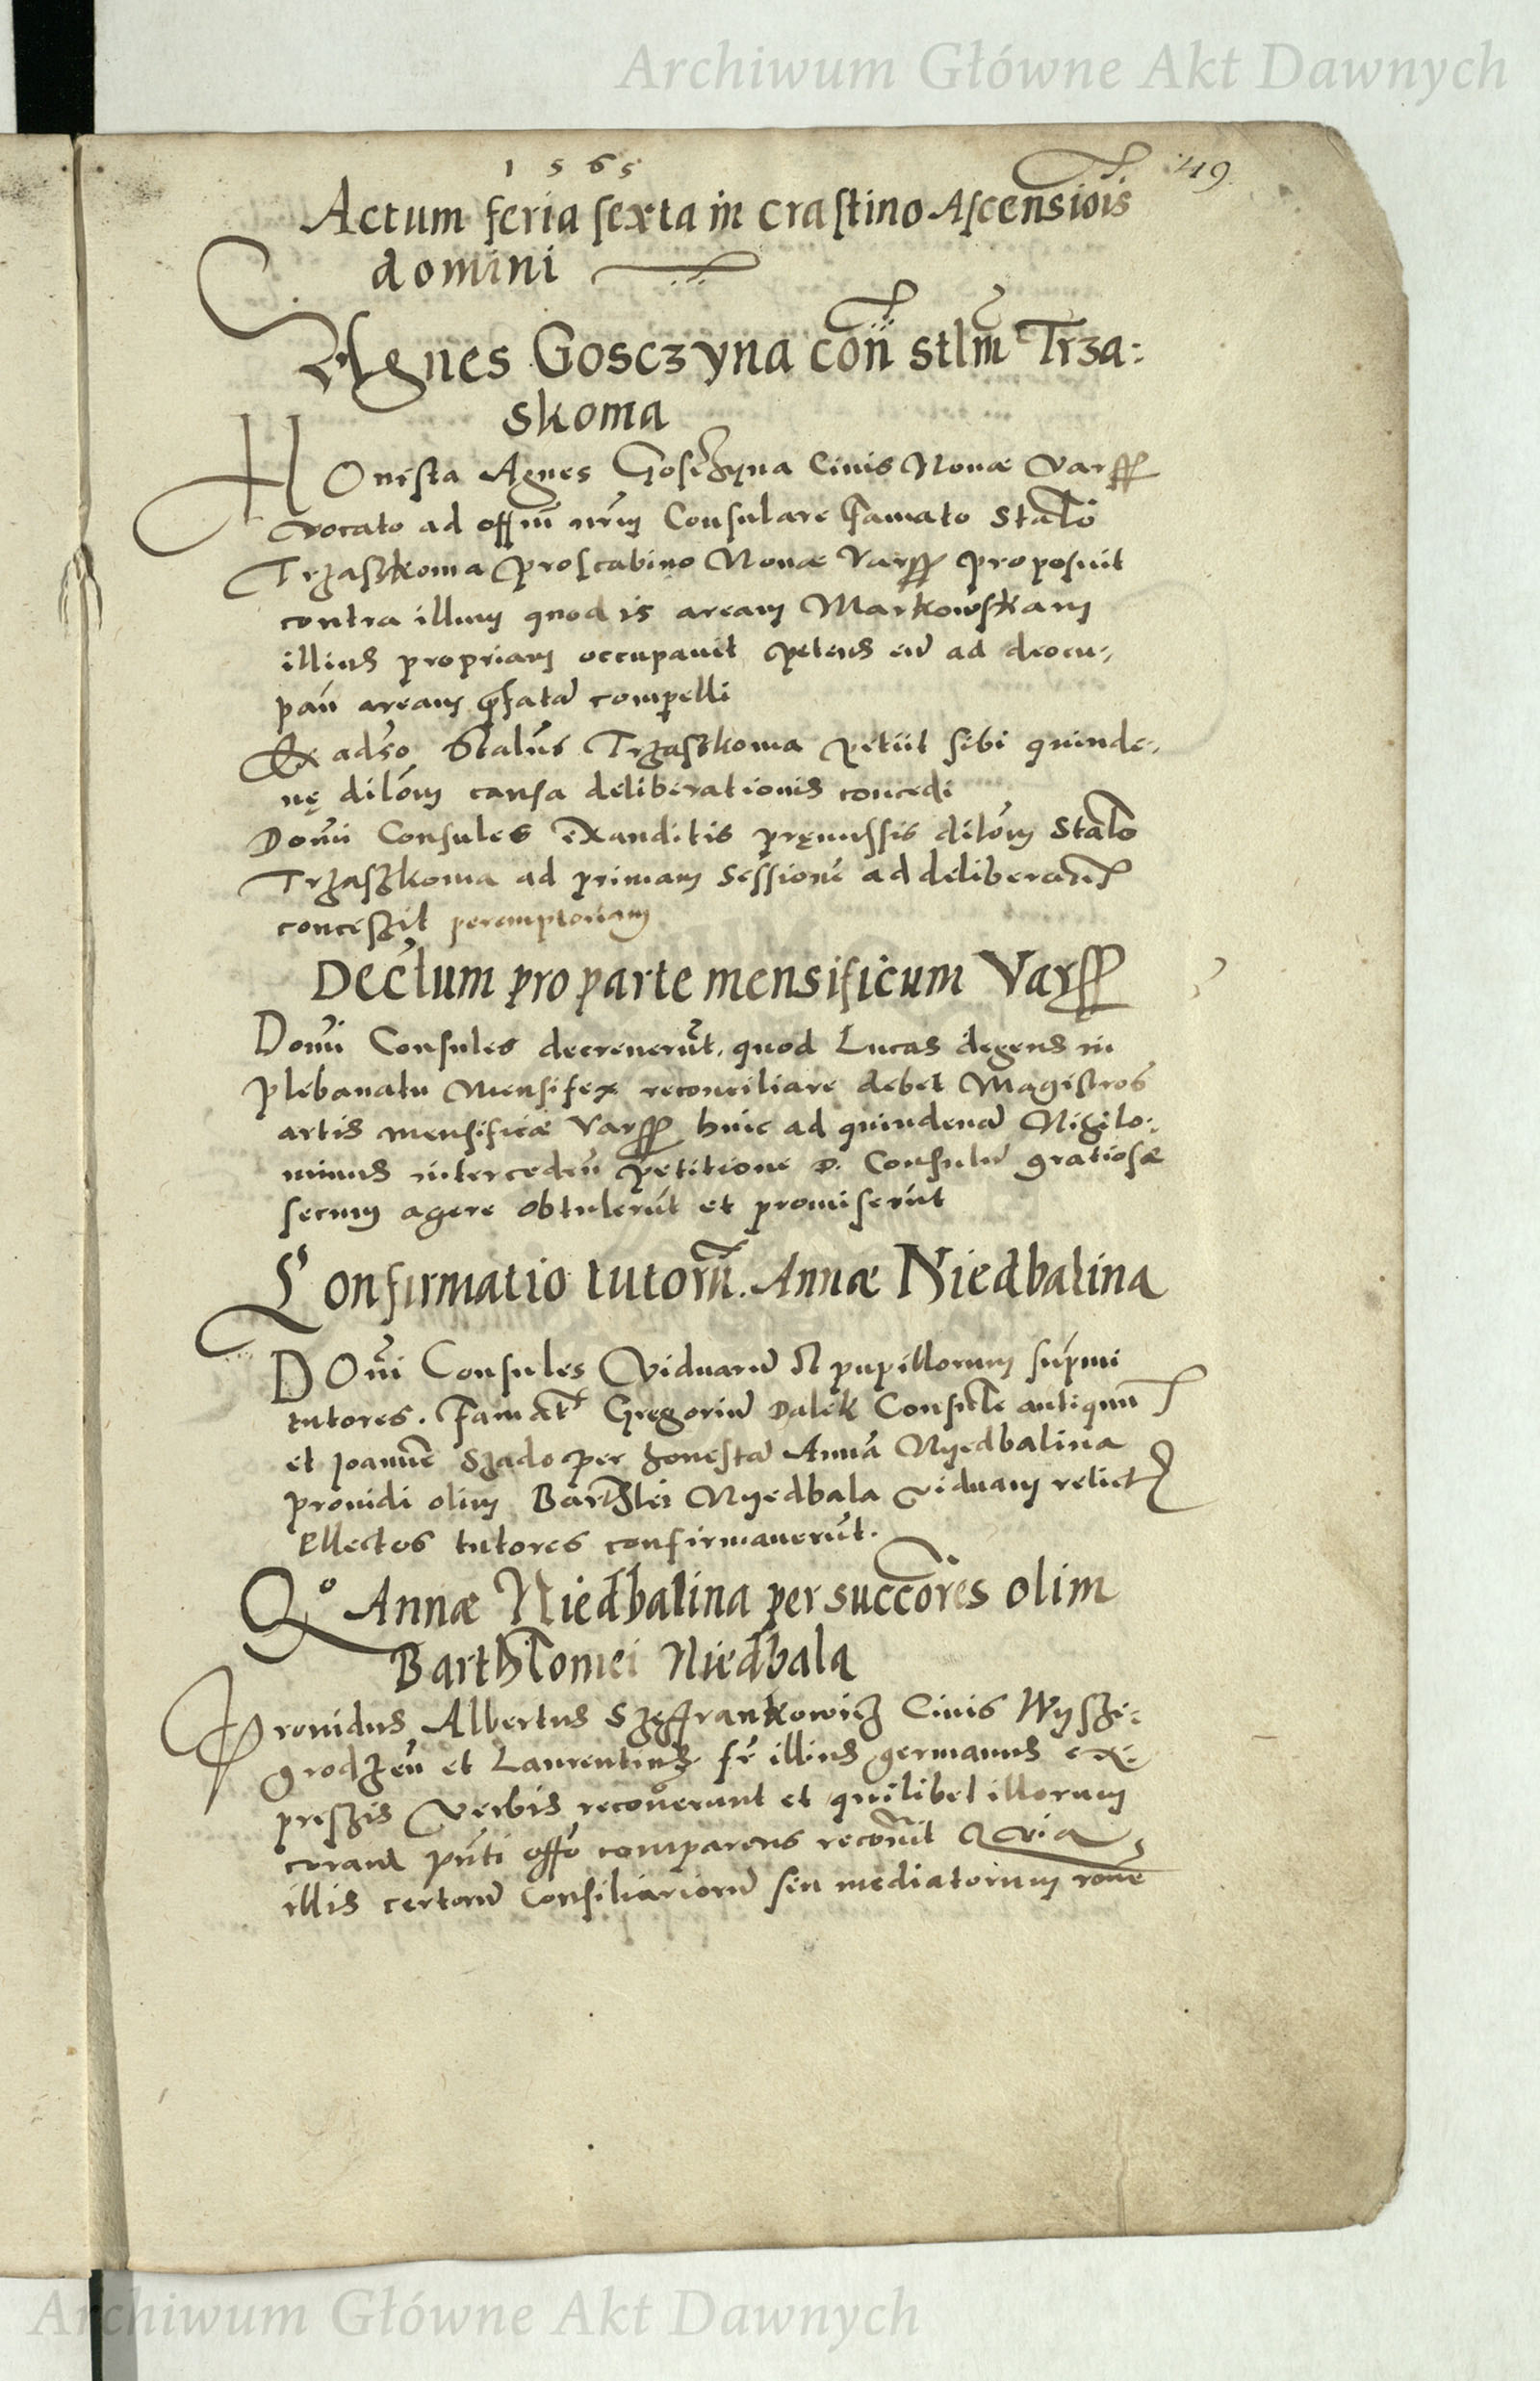 Archiwum Główne Akt Dawnych
1565
49
Actum feria sexta in crastino Ascensiois
domini
Agnes Gosczyna con̄ stlm̄ Trza:
skoma
HOnesta Agnes Gosczyna Ciuis Nouæ Vars
vocato ad offm̄ nrm̄ Consulare famato Stalo
Trzaszkoma Proscabino Nouæ Vars proposuit
contra illum quod is aream Markowskam
illius propriam occupauit petens eū ad deocu:
pan̄ aream p̄fatā compelli
Ex adso Stalus Trzaszkoma petiit sibi quinde:
nę dilōm causa deliberationis concedi
Domī Consules exauditis pręmissis dilōm Stalo
Trzaszkoma ad primam Sessionē ad deliberand
conceszit peremptoriam
Dectum pro parte mensificum Vars
Domī Consules decreuerūt, quod Lucas degens in
Plebanatu Mensifex reconciliare debet Magistros
artis mensificæ Vars huic ad quindenā Nihilo:
minus intercedeñ petitione D. Consulū gratiosæ
secum agere obtulerūt et promiserūt
Confirmatio tutorū. Annæ Niedbalina
DOmī Consules Viduarū et pupillorum suprmi
tutores. famat Gregoriū Dalek Consule antiquū
et Joannē Szado per honestā Annā Nyedbalina
prouidi olim Barthlei Nyedbala viduam relict
Ellectos tutores confirmauerūt.
Qo Annæ Niedbalina per succōres olim
Barthlomei Niedbala
Prouidus Albertus Szęffrankowicz Ciuis Wyszi:
grodzeñ et Laurentius fr̄ illius germanus ex:
preszis verbis recoūerunt et quilibet illorum
coram pn̄ti offo comparens recoūit Q via
illis certorū Consiliariorū seu mediatorum roūe
Archiwum Główne Akt Dawnych